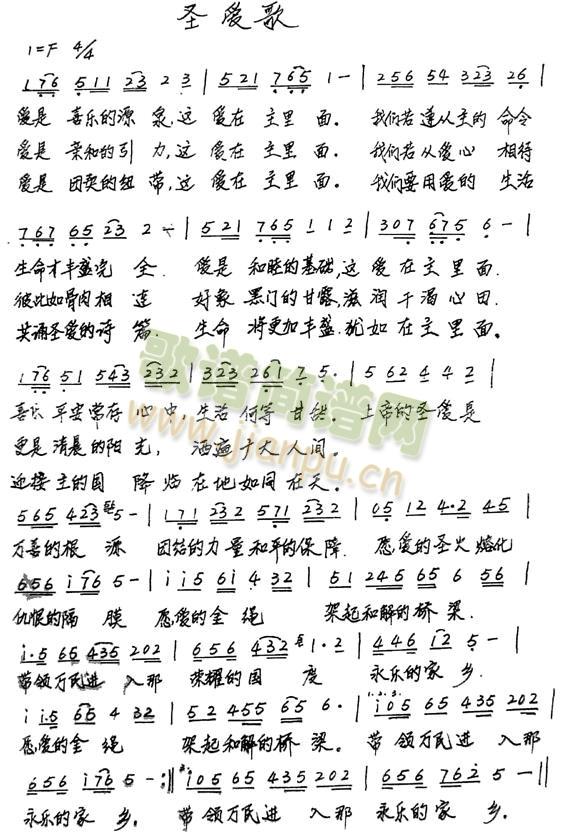 圣爱歌
1=F 4/4
176 511 23 2 3 | 521 765 1 - | 256 54 323 26 |
爱是 喜乐的源 泉,这 爱在 主里 面. 我们若 遵从主的 命令
爱是 亲和的引 力,这 爱在 主里 面. 我们若 从爱心 相待
爱是 团契的纽 带,这 爱在 主里 面. 我们要 用爱的 生活
767 65 23 2 - | 521 765 1 1 2 | 307 675 6 - |
生命才丰盛完 全. 爱是 和睦的基础,这 爱在主里面.
彼此如骨肉相 连 好象 黑门的甘露,滋 润干渴心田.
共诵圣爱的诗 篇. 生命 将更加丰盛.犹如在主里面.
176 51 543 232 | 323 261 7 5. | 5 62 4 4 2 |
喜乐 平安常存 心中,生活 何等 甘甜. 上帝的圣爱是
更是 清晨的阳 光, 洒遍 千大人间.
迎接 主的国 降临 在地如同在天.
565 423 5 - | 171 232 571 232 | 05 12 4.2 45 |
万善的根 源 团结的力 量和平的保 障. 愿爱的圣火 熔化
656 i76 5 - | i i5 6i 4 32 | 51 245 65 6 56 |
仇恨的隔 膜 愿爱的金 绳 架起和解的桥 梁.
i.5 65 435 202 | 656 432 1.2 | 446 i2 5 - |
带领万民进 入那 荣耀的国 度 永乐的家 乡.
i i.5 65 4 32 | 52 455 65 6. | i05 65 435 202 |
愿爱的金 绳 架起和解的桥 梁. 带领万民进 入那
656 i76 5 - :|| i05 65 435 202 | 656 762 5 - ||
永乐的家 乡. 带领万民进 入那 永乐的家 乡.
歌谱简谱网
www.jianpu.cn